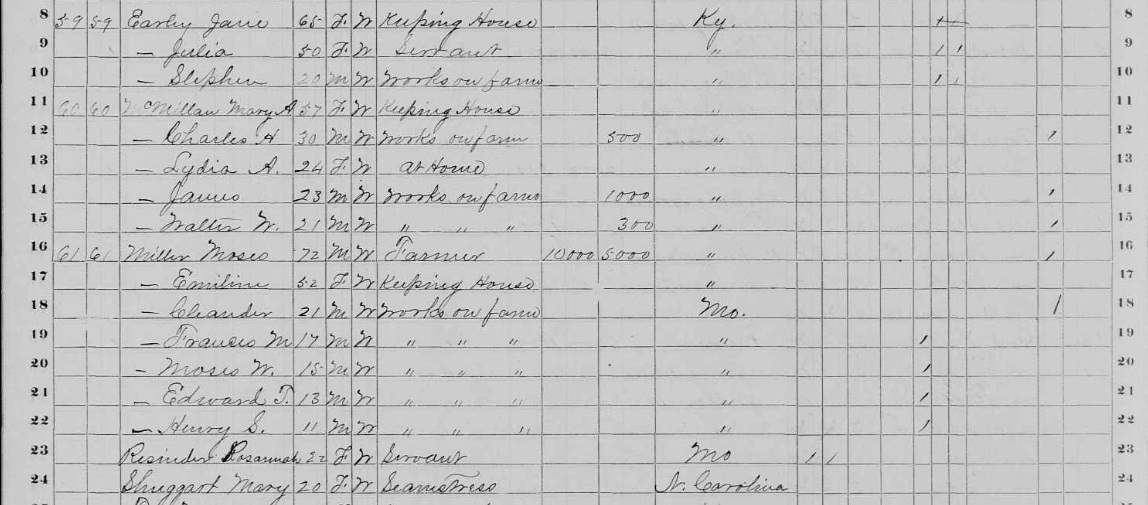 8 59 59 Earley Jane 65 F W Keeping House Ky. 8
9 — Julia 50 F W Servant " 9
10 — Stephen 20 M W Works on farm " 10
11 60 60 McMillan Mary A 57 F W Keeping House " 11
12 — Charles H 30 M W Works on farm 500 " 12
13 — Lydia A. 24 F W at Home " 13
14 — James 23 M W Works on farm 1000 " 14
15 — Walter W. 21 M W " " " 300 " 15
16 61 61 Miller Moses 72 M W Farmer 10000 5000 " 16
17 — Emiline 52 F W Keeping House " 17
18 — Cleander 21 M W Works on farm Mo. 18
19 — Francis M 17 M W " " " " 19
20 — Moses W. 15 M W " " " " 20
21 — Edward T. 13 M W " " " " 21
22 — Henry S. 11 M W " " " " 22
23 Rosannah 22 F W Servant Mo 23
24 Shuggart Mary 20 F W Seamstress N. Carolina 24